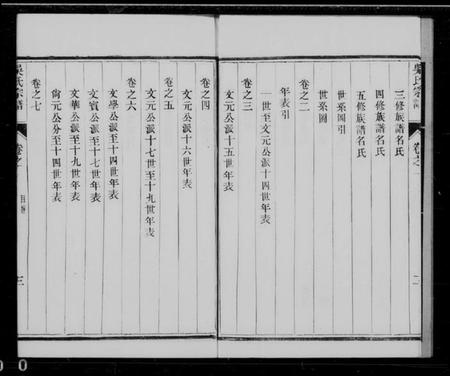 吳氏宗譜
卷之一
三修族譜名氏
四修族譜名氏
五修族譜名氏
世系圖引
世系圖
卷之二
年表引
一世至文元公派十四世年表
卷之三
文元公派十五世年表
二
卷之四
文元公派十六世年表
卷之五
文元公派十七世至十九世年表
卷之六
文學公派至十四世年表
文賓公派至十七世年表
文華公派至十九世年表
尙元公分至十四世年表
卷之七
吳氏宗譜
卷之一
目
三
0 0